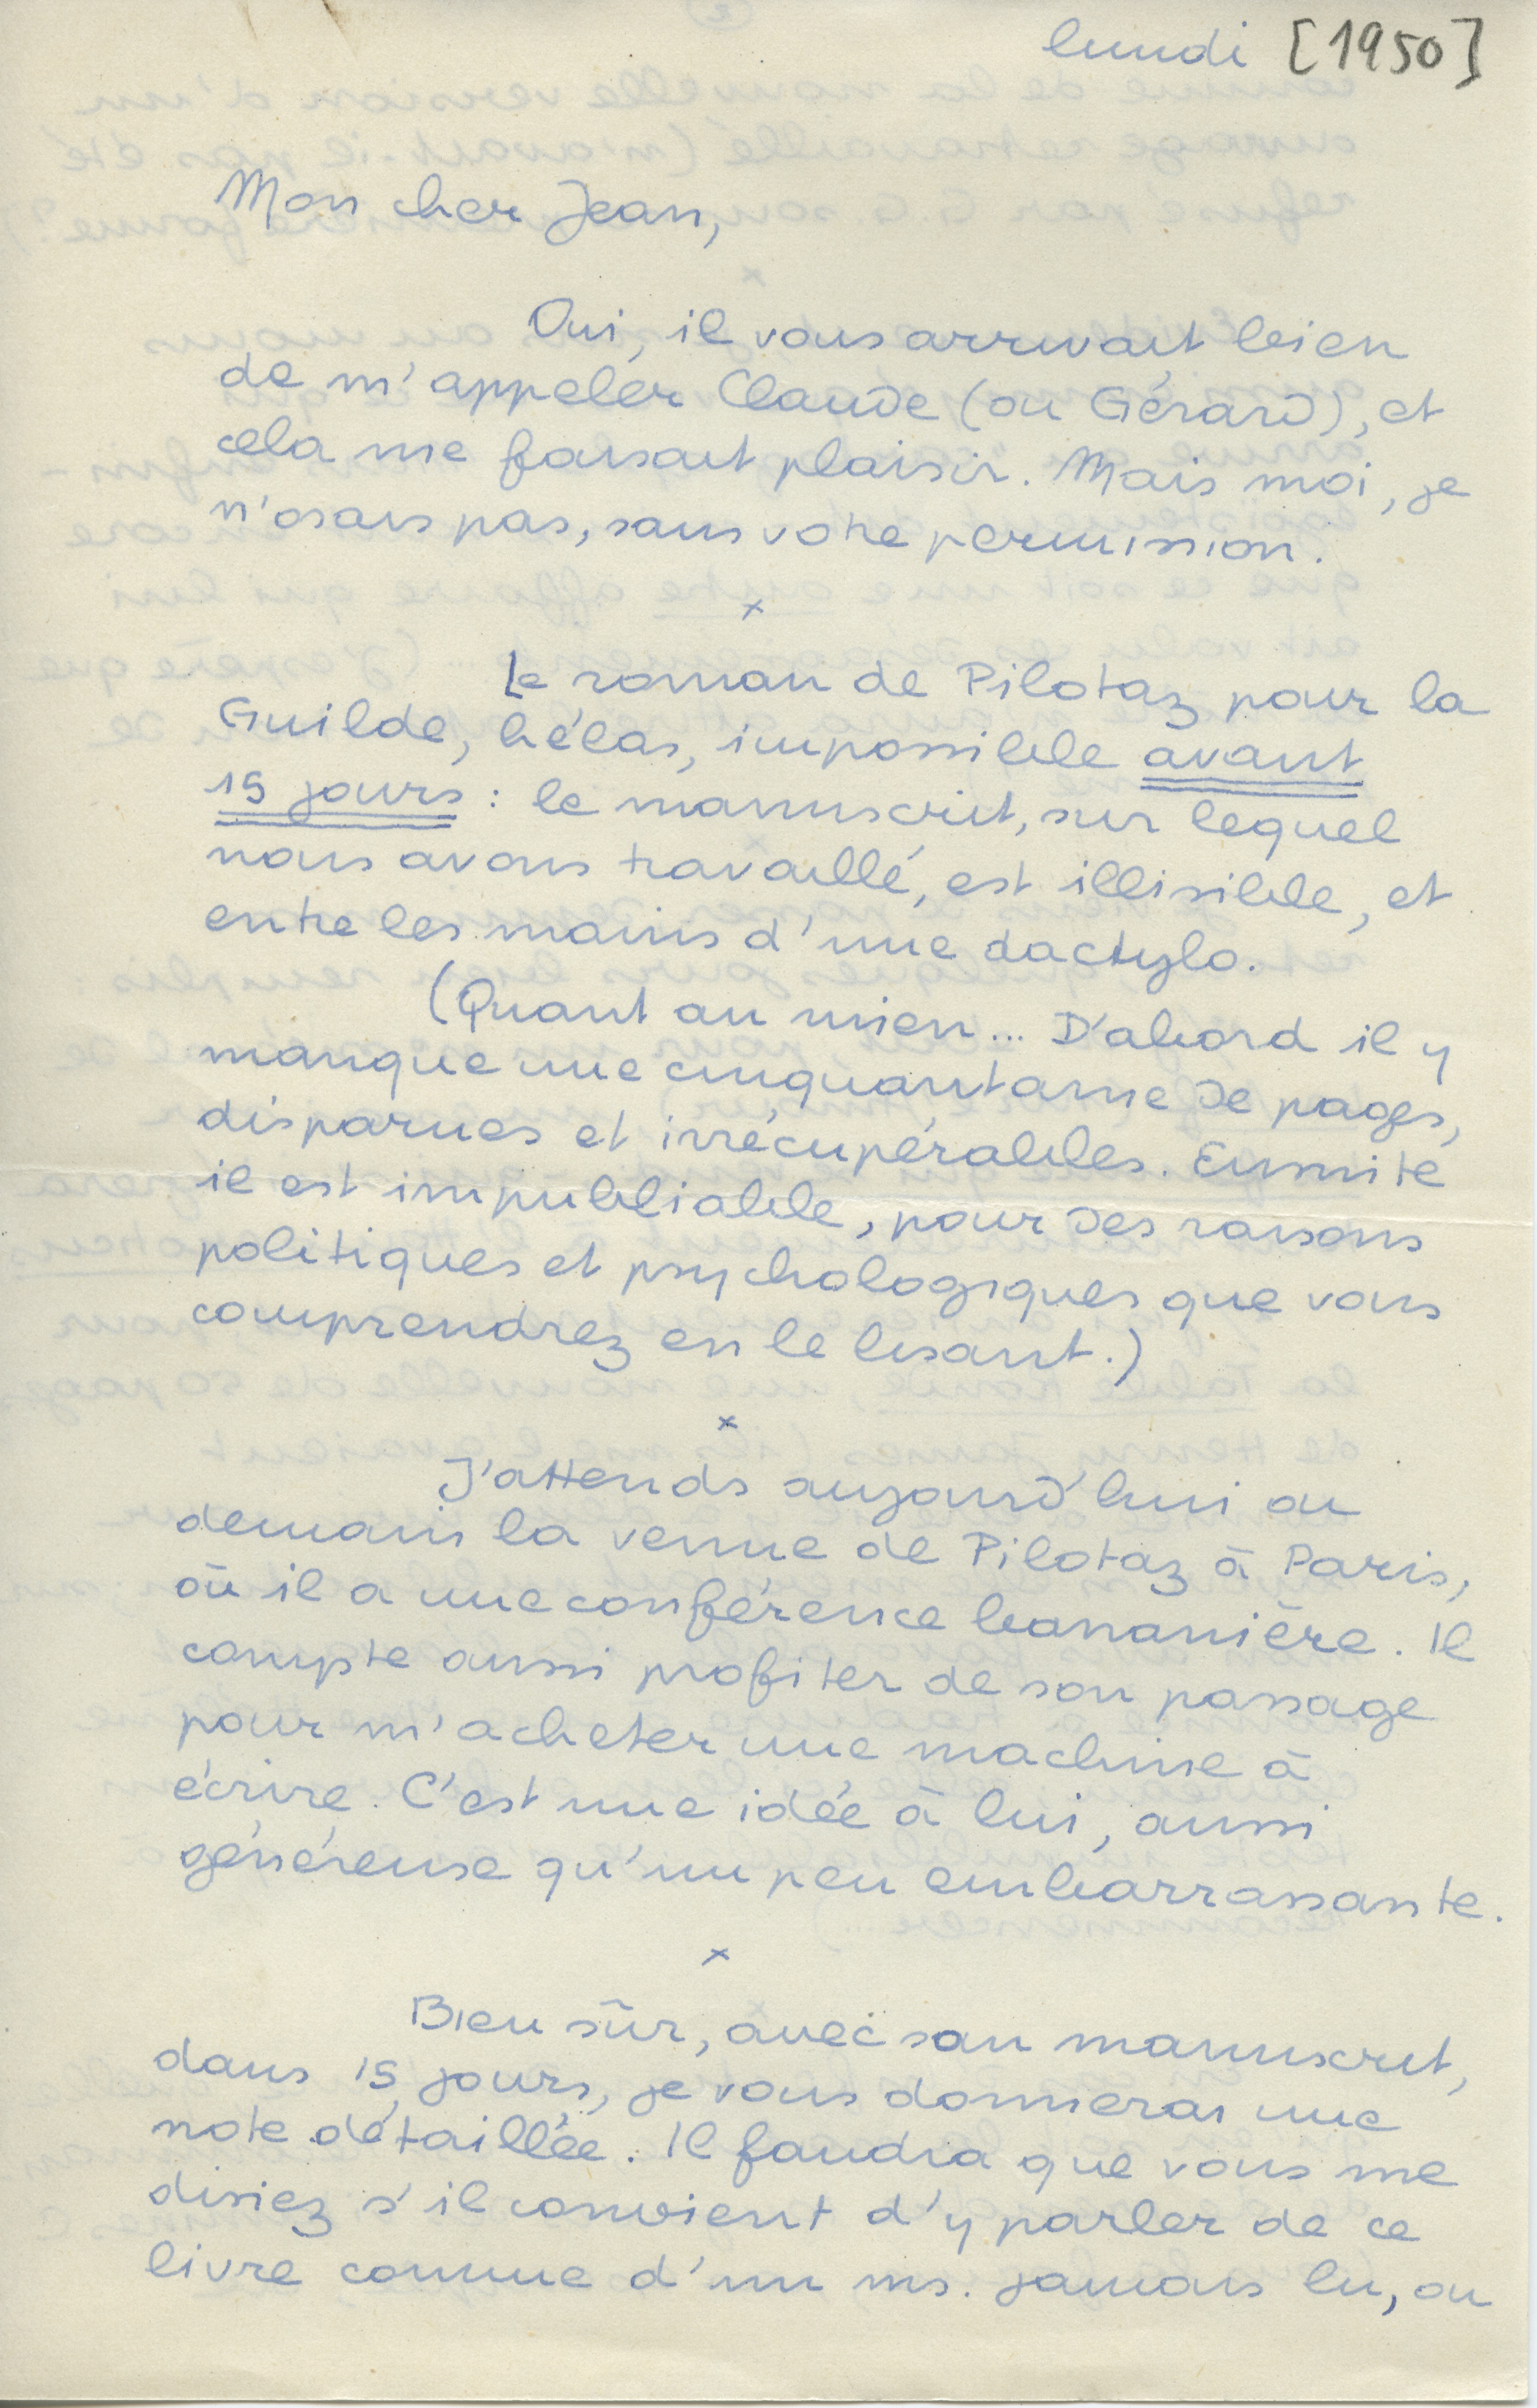 lundi [1950]
Mon cher Jean,
Oui, il vous arrivait bien
de m'appeler Claude (ou Gérard), et
cela me faisait plaisir. Mais moi, je
n'osais pas, sans votre permission.
x
Le roman de Pilotaz pour la
Guilde, hélas, impossible avant
15 jours : le manuscrit, sur lequel
nous avons travaillé, est illisible, et
entre les mains d'une dactylo.
(Quant au mien... D'abord il y
manque une cinquantaine de pages,
disparues et irrécupérables. Ensuite
il est impubliable, pour des raisons
politiques et psychologiques que vous
comprendrez en le lisant.)
x
J'attends aujourd'hui ou
demain la venue de Pilotaz à Paris,
où il a une conférence bananière. Il
compte aussi profiter de son passage
pour m'acheter une machine à
écrire. C'est une idée à lui, aussi
généreuse qu'un peu embarrassante.
x
Bien sûr, avec son manuscrit,
dans 15 jours, je vous donnerai une
note détaillée. Il faudra que vous me
disiez s'il convient d'y parler de ce
livre comme d'un ms. jamais lu, ou